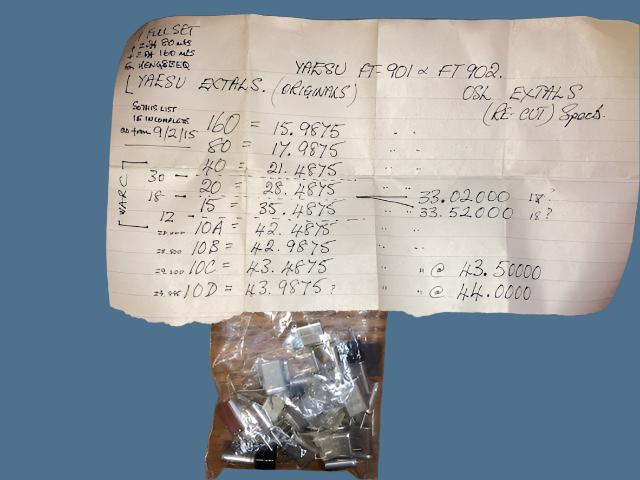 1 FULL SET
+ 2 EA 80 mts
+ 2 EA 160 mts
YAESU FT-901 & FT 902.
[YAESU EXTALS. (ORIGINALS)
OSL EXTALS
(RE-CUT) Specs.
SO THIS LIST
IS INCOMPLETE
as from 9/2/15
160 = 15.9875 " "
80 = 17.9875
40 = 21.4875 " "
WARC
30 —
20 = 28.4875 " " 33.02000 18?
18 —
15 = 35.4875 " " 33.52000 18?
12 —
10A = 42.4875 " "
28.500 10B = 42.9875
29.200 10C = 43.4875 " " @ 43.50000
10D = 43.9875? " " @ 44.0000